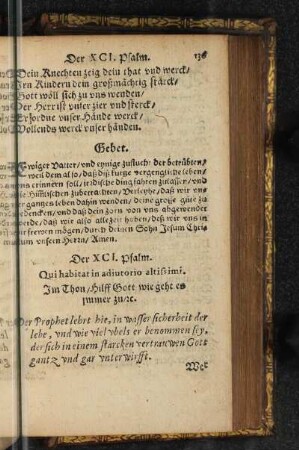 Der XCI. Psalm. 136
Dein Knechten zeig dein that vnd werck/
Irn Kindern dein großmächtig stärck/
Gott wöll sich zu vns wenden/
Der Herr ist vnser zier vnd sterck/
Er fordre vnser Hände werck/
Vollends werck vnser händen.
Gebet.
Ewiger Vatter/ vnd eynige zuflucht der betrübten/
weil dem also/ daß diß kurtze vergengliche leben/
vns erinnern soll/ irdische ding fahren zulassen/ vnd
die Himlischen zubetrachten/ Verleyhe/ daß wir vns
vergangen leben dahin wenden/ deine grosse güte zu
bedencken/ vnd daß dein zorn von vns abgewendet
werde/ daß wir also allezeit haben/ deß wir vns in
frewen mögen/ durch deinen Sohn Jesum Chris
tum vnsern Herrn/ Amen.
Der XCI. Psalm.
Qui habitat in adiutorio altissimi.
Im Thon/ Hilff Gott wie geht es
jmmer zu/ꝛc.
Der Prophet lehrt hie, in wasser sicherheit der
lebe, vnd wie viel vbels er benommen sey,
der sich in einem starcken vertrauwen Gott
gantz vnd gar vnterwirfft.
Wer